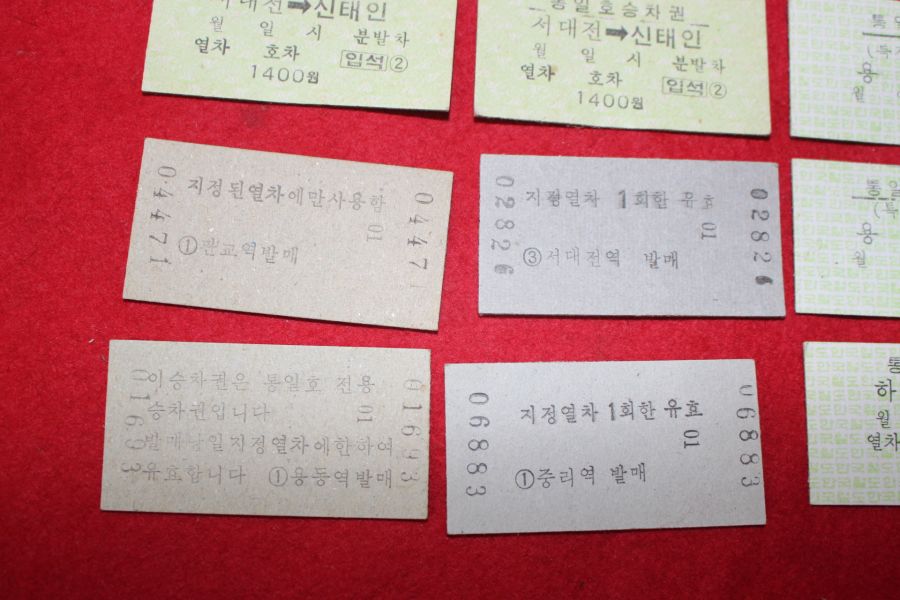 서대전➡신태인
월 일 시 분발차
열차 호차 입석②
1400원
통일호승차권
서대전➡신태인
월 일 시 분발차
열차 호차 입석②
1400원
통일
용
월
04471
지정된열차에만사용함
01
①판교역발매
0447
02826
지정열차 1회한 유효
01
③서대전역 발매
02826
통일
용
월
01693
이승차권은 통일호 전용
승차권입니다
01
발매당일지정열차에한하여
유효합니다 ①용동역발매
01693
06883
지정열차 1회한 유효
01
①중리역 발매
06883
통
하
월
열차